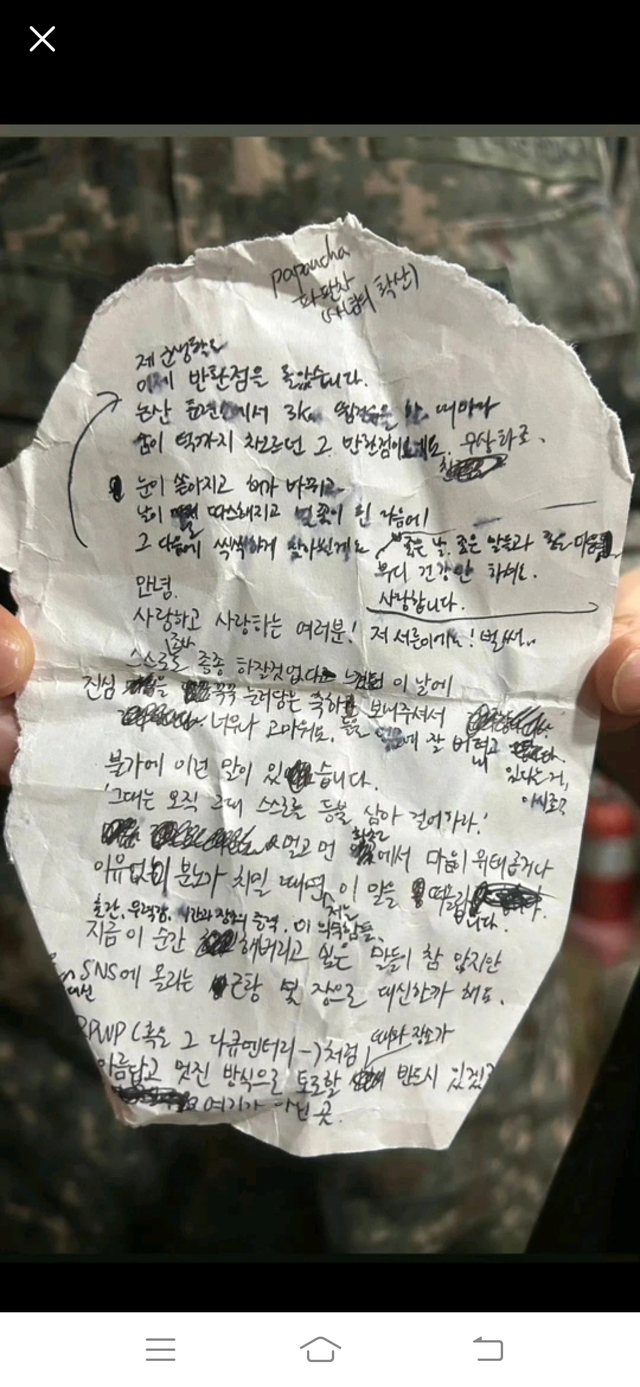 papaucha
파판차
제 군생활도
이제 반환점을 돌았습니다.
논산 훈련소에서 3km 뜀걸음을 할 때마다
숨이 턱까지 차오르던 그 반환점이네요. 우상화로.
눈이 쏟아지고 해가 바뀌고
날이 따스해지고 벚꽃이 핀 다음에
그 다음에 씩씩하게 찾아뵐게요
좋은 날, 좋은 말들과 좋은 마음
부디 건강만 하세요.
사랑합니다.
안녕.
사랑하고 사랑하는 여러분! 저 서른이에요! 벌써..
스스로도 종종 하잘것없다 느껴질 이 날에
진심을 꾹꾹 눌러담은 축하 보내주셔서
너무나 고마워요. 잘 버티고
있다는거,
아시죠?
불가에 이런 말이 있습니다.
'그대는 오직 그대 스스로를 등불 삼아 걸어가라.'
멀고 먼 화천에서 마음이 위태롭거나
이유없이 분노가 치밀 때면 저는 이 말을 떠올립니다.
혼란, 무력감, 시간과 장소의 술력, 이 의무함들.
지금 이 순간 해버리고 싶은 말들이 참 많지만
SNS에 올리는 근황 몇 장으로 대신할까 해요.
RPWP (혹은 그 다큐멘터리-)처럼
아름답고 멋진 방식으로 토로할 때와 장소가 반드시 있겠죠
여기가 아닌 곳.